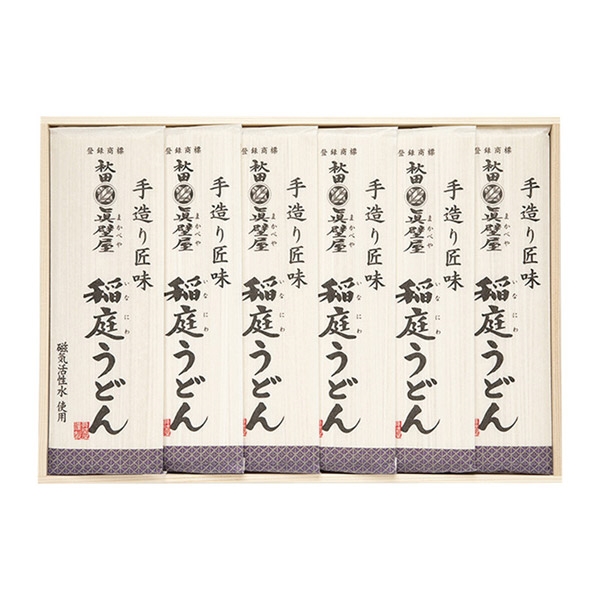 登録商標
手造り匠味
秋田
眞壁屋
まかべや
稲庭うどん
いなにわ
磁気活性水 使用
登録商標
手造り匠味
秋田
眞壁屋
まかべや
稲庭うどん
いなにわ
登録商標
手造り匠味
秋田
眞壁屋
まかべや
稲庭うどん
いなにわ
登録商標
手造り匠味
秋田
眞壁屋
まかべや
稲庭うどん
いなにわ
登録商標
手造り匠味
秋田
眞壁屋
まかべや
稲庭うどん
いなにわ
登録商標
手造り匠味
秋田
眞壁屋
まかべや
稲庭うどん
いなにわ